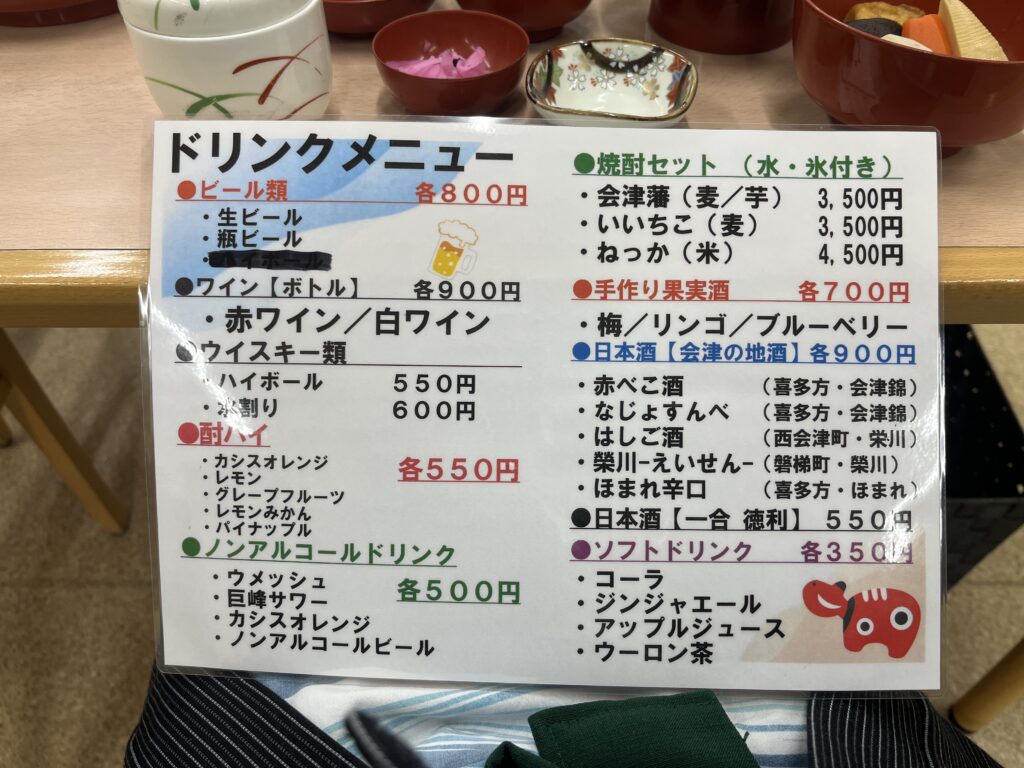 ドリンクメニュー
●ビール類 各800円
・生ビール
・瓶ビール
●ワイン【ボトル】 各900円
・赤ワイン／白ワイン
●ウイスキー類
・ハイボール 550円
・水割り 600円
●酎ハイ
・カシスオレンジ
各550円
・レモン
・グレープフルーツ
・レモンみかん
・パイナップル
●ノンアルコールドリンク
・ウメッシュ
各500円
・巨峰サワー
・カシスオレンジ
・ノンアルコールビール
●焼酎セット （水・氷付き）
・会津藩（麦／芋） 3,500円
・いいちこ（麦） 3,500円
・ねっか（米） 4,500円
●手作り果実酒 各700円
・梅／リンゴ／ブルーベリー
●日本酒【会津の地酒】各900円
・赤べこ酒 （喜多方・会津錦）
・なじょすんべ （喜多方・会津錦）
・はしご酒 （西会津町・栄川）
・榮川-えいせん-（磐梯町・榮川）
・ほまれ辛口 （喜多方・ほまれ）
●日本酒【一合 徳利】 550円
●ソフトドリンク 各350円
・コーラ
・ジンジャエール
・アップルジュース
・ウーロン茶